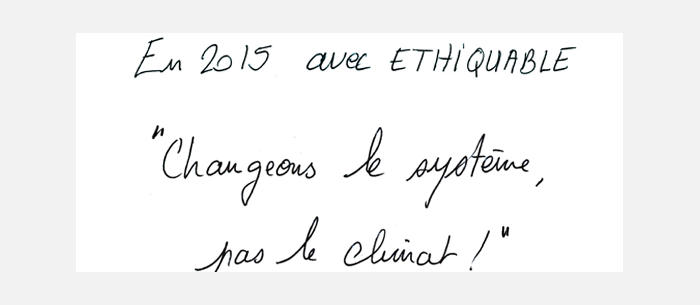 En 2015 avec ETHiQUABLE
"Changeons le système,
pas le climat !"